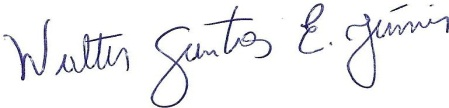 Walter Santos E. Júnior